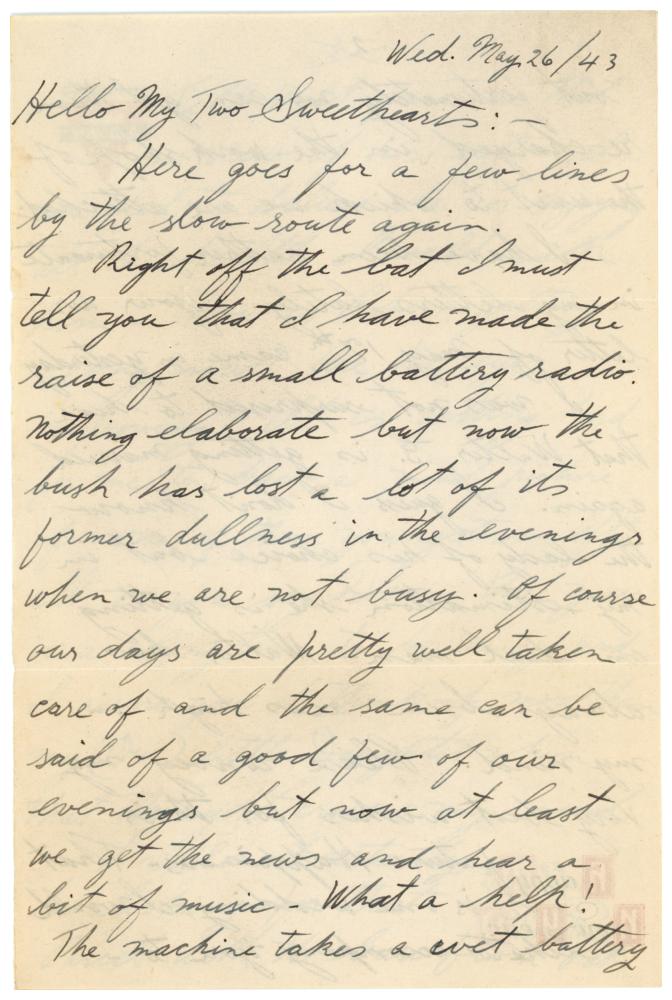 Wed. May 26/43
Hello My Two Sweethearts:-
Here goes for a few lines
by the slow route again.
Right off the bat I must
tell you that I have made the
raise of a small battery radio.
Nothing elaborate but now the
bush has lost a lot of its
former dullness in the evenings
when we are not busy. Of course
our days are pretty well taken
care of and the same can be
said of a good few of our
evenings but now at least
we get the news and hear a
bit of music - What a help!
The machine takes a wet battery